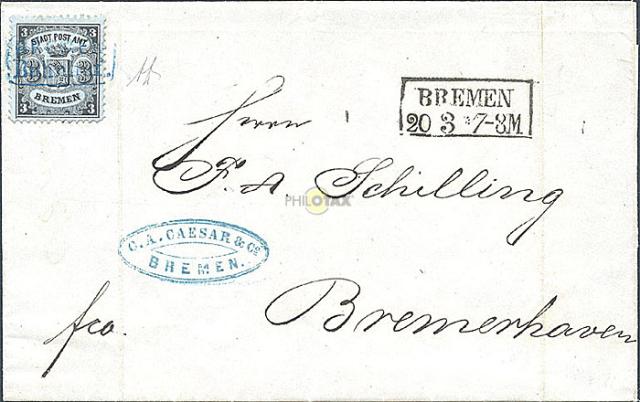 3 3
STADT POST AMT
3 3
BREMEN
3 3
BREMEN
20 3 *7-8M
Herrn
F. A. Schilling
PHILOTAX
C. A. CAESAR & Co
BREMEN.
fco.
Bremerhaven